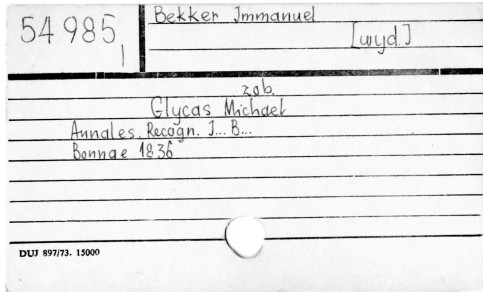 54 985
I
Bekker Immanuel
[wyd.]
zob.
Glycas Michael
Annales. Recogn. I... B...
Bonnae 1836
DUJ 897/73. 15000